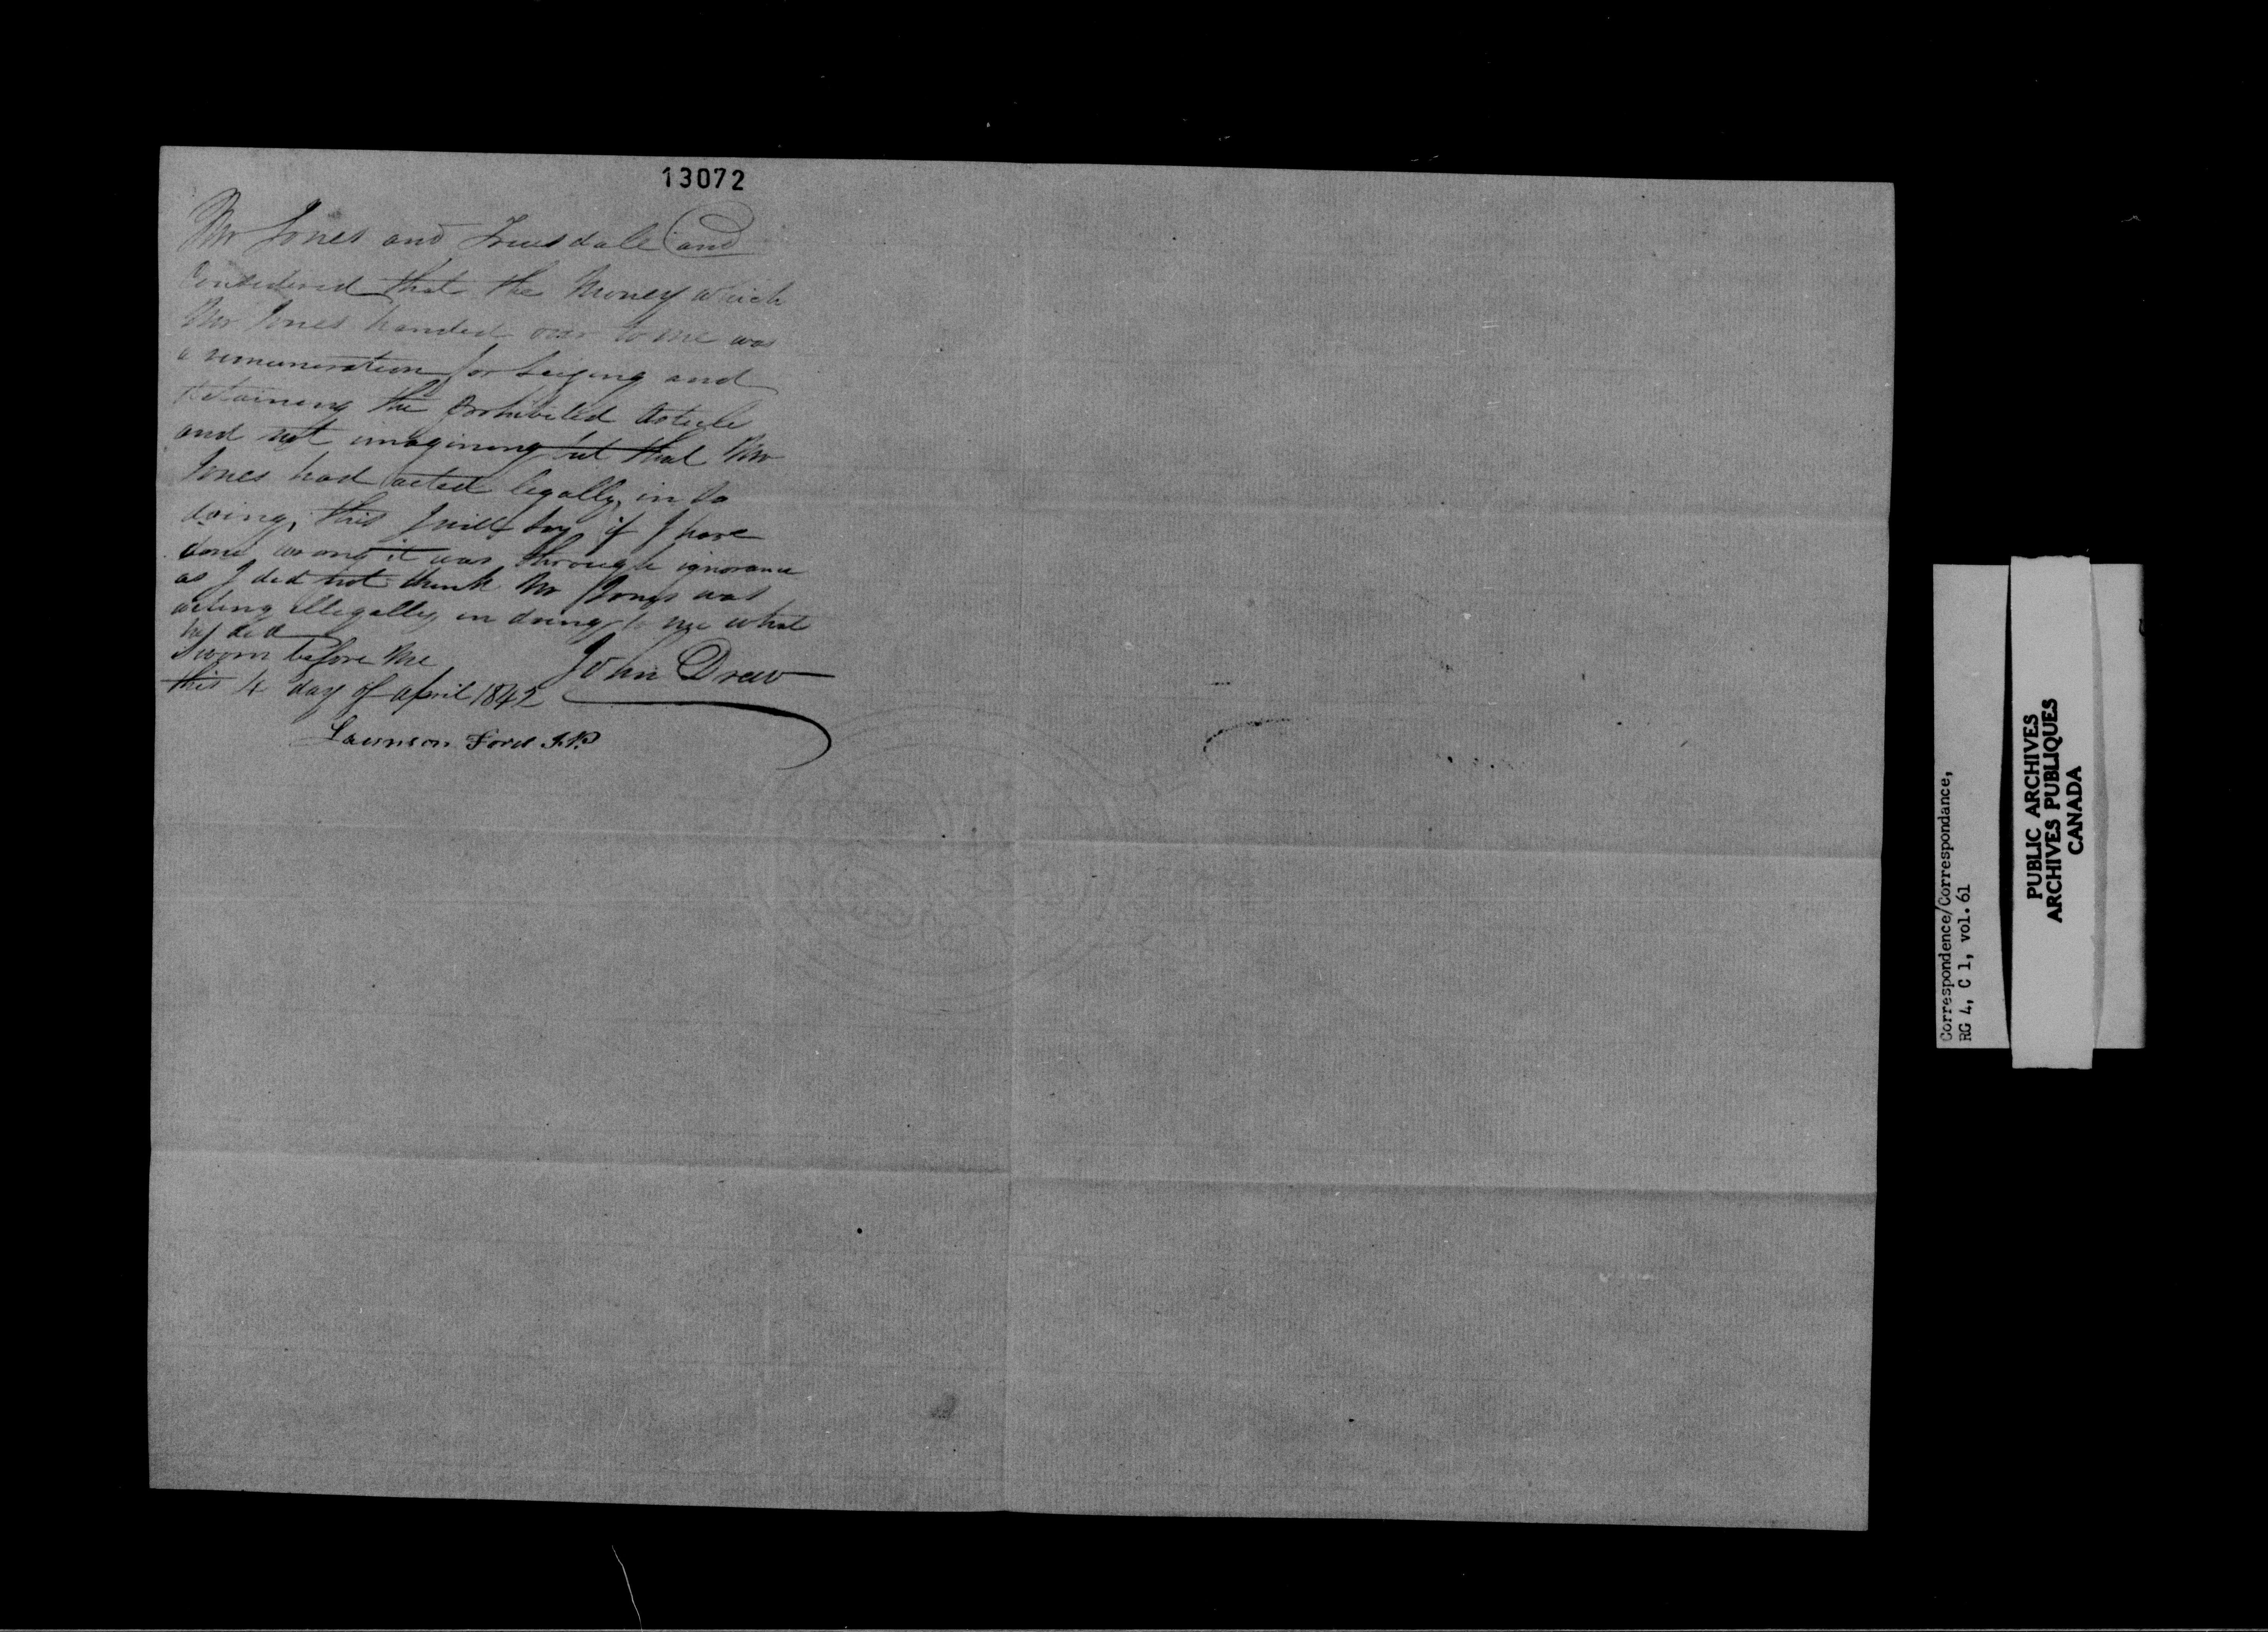 13072
Mr Jones and Truesdale and
Considered that the Money which
Mr Jones handed over to me was
a remuneration for Seizing and
detaining the Prohibited Article
and not imagining but that Mr
Jones had acted legally, in So
doing, this I will Say if I have
done wrong it was through ignorance
as I did not think Mr Jones was
acting illegally in doing to me what
he did
Sworn before Me
John Drew
this 4 day of april 1842
Ford J.P.
Correspondence/Correspondance,
RG 4, C 1, vol. 61
PUBLIC ARCHIVES
ARCHIVES PUBLIQUES
CANADA